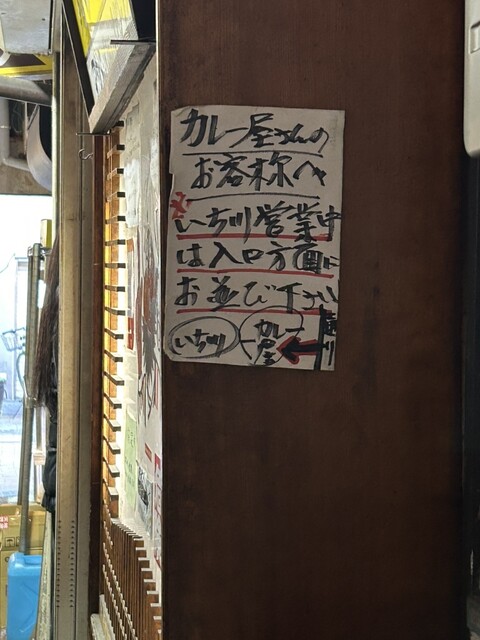 カレー屋さんの
お客様へ
※いち川営業中
は入口方面に
お並び下さい
いち川 カレー屋 ← 通り